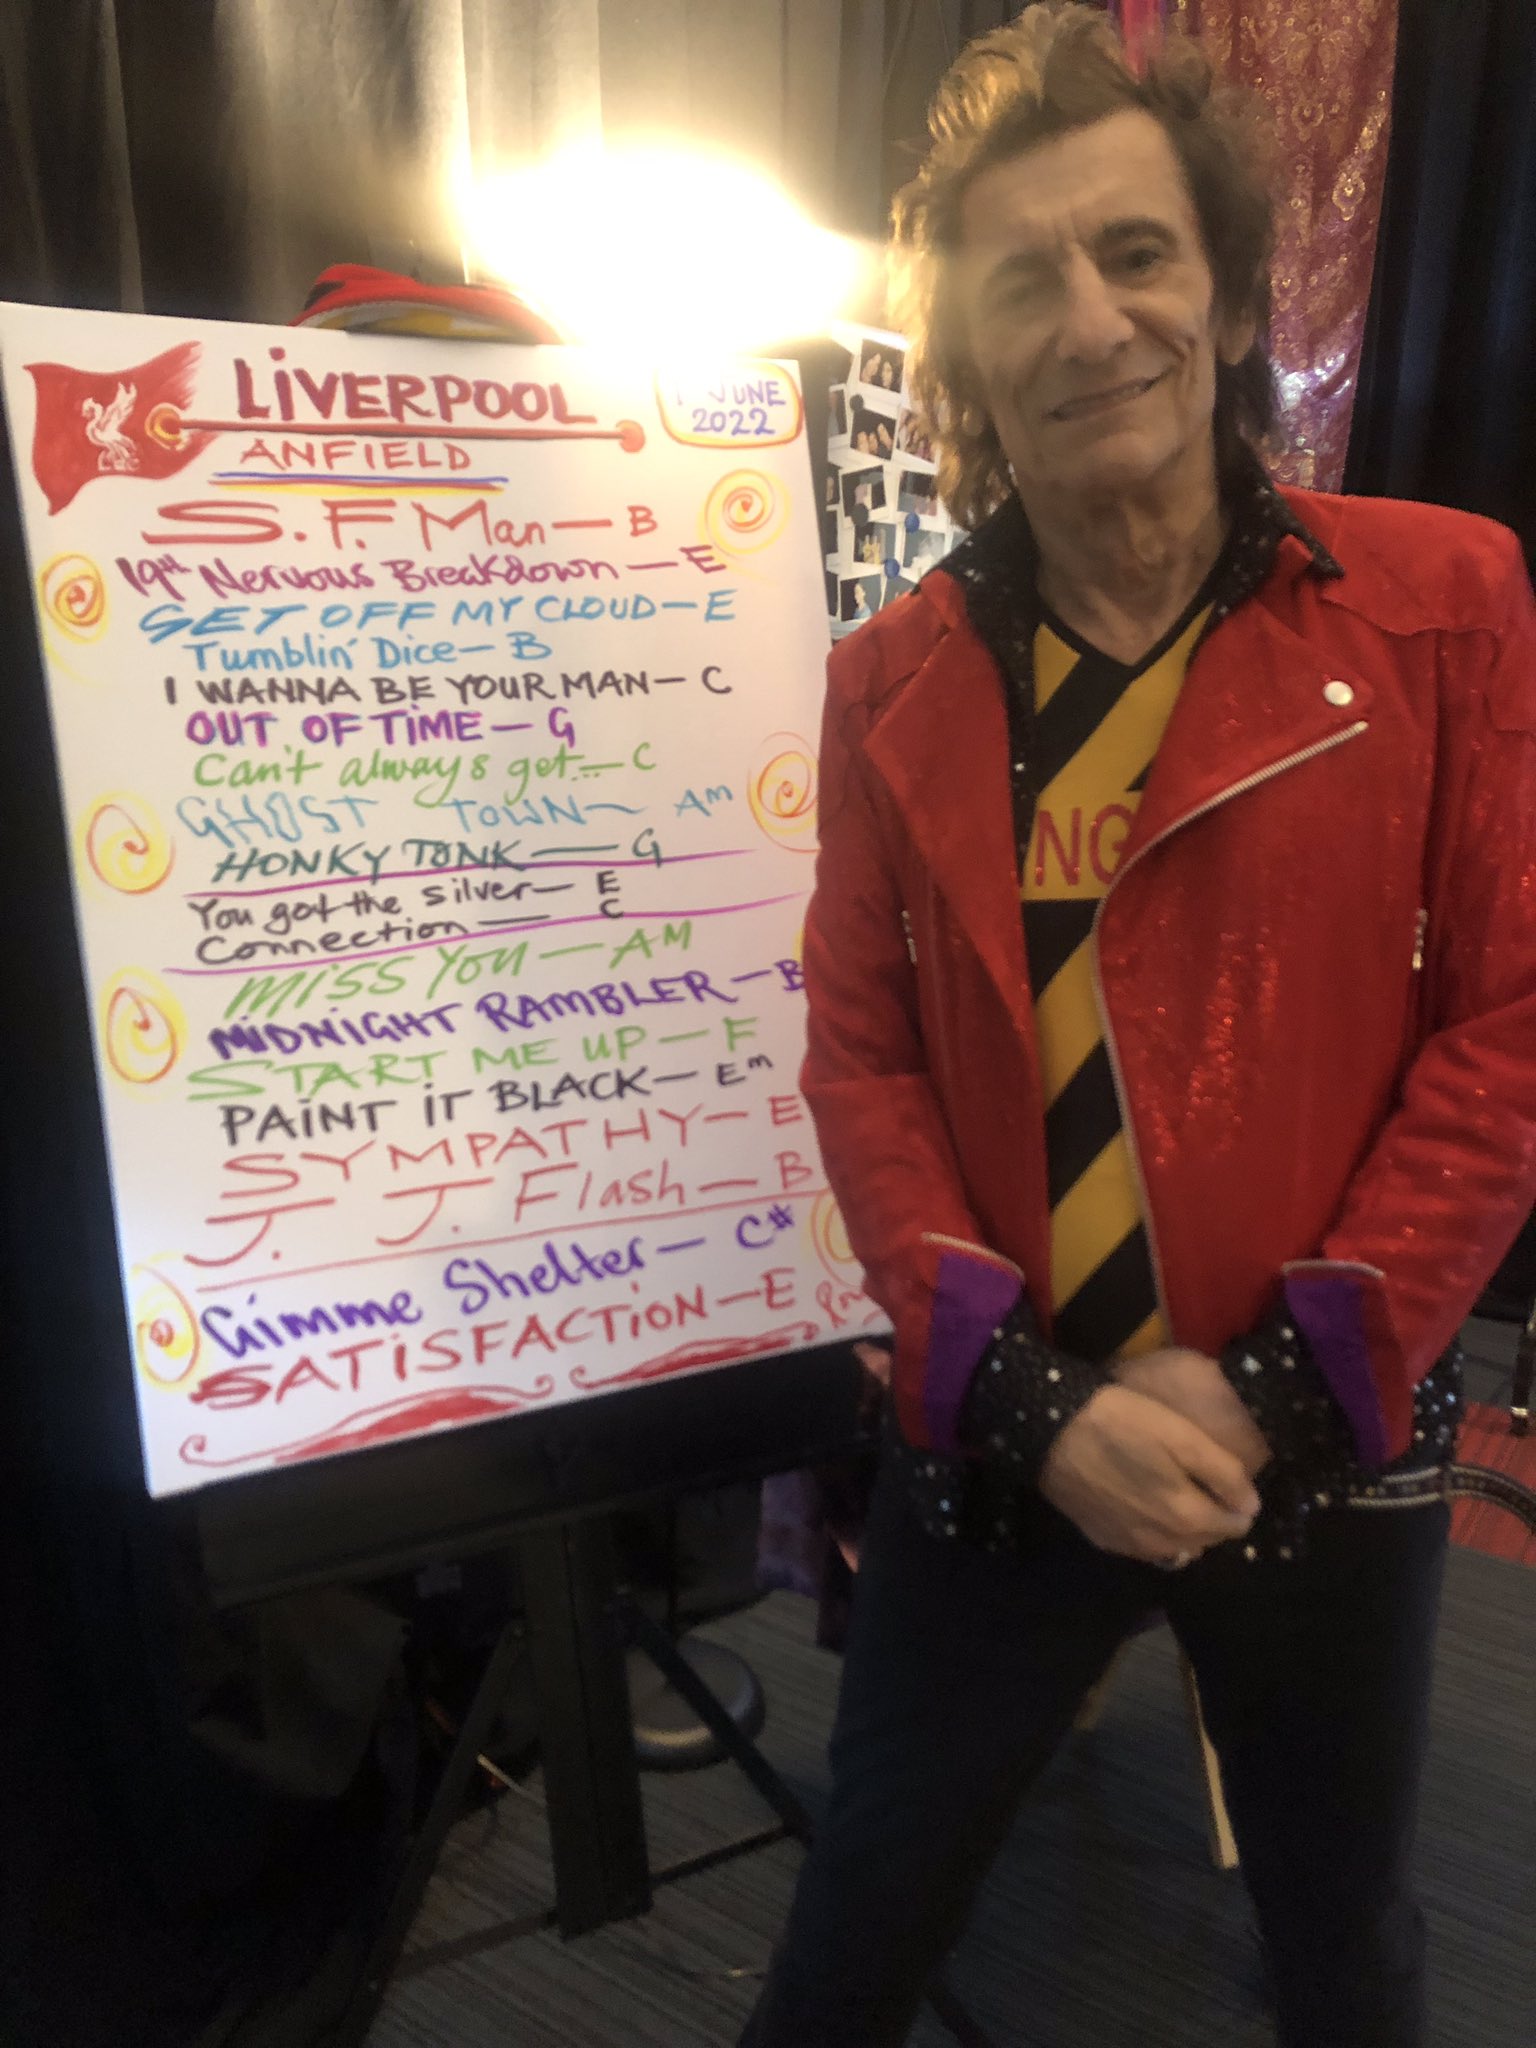 LIVERPOOL
JUNE
2022
ANFIELD
S.F. Man — B
19th Nervous Breakdown — E
GET OFF MY CLOUD — E
Tumblin' Dice — B
I WANNA BE YOUR MAN — C
OUT OF TIME — G
Can't always get... — C
GHOST TOWN — Am
HONKY TONK — G
You got the silver — E
Connection — C
MISS YOU — AM
MIDNIGHT RAMBLER — B
START ME UP — F
PAINT IT BLACK — Em
SYMPATHY — E
J. J. Flash — B
Gimme Shelter — C#
SATISFACTION — E
NG